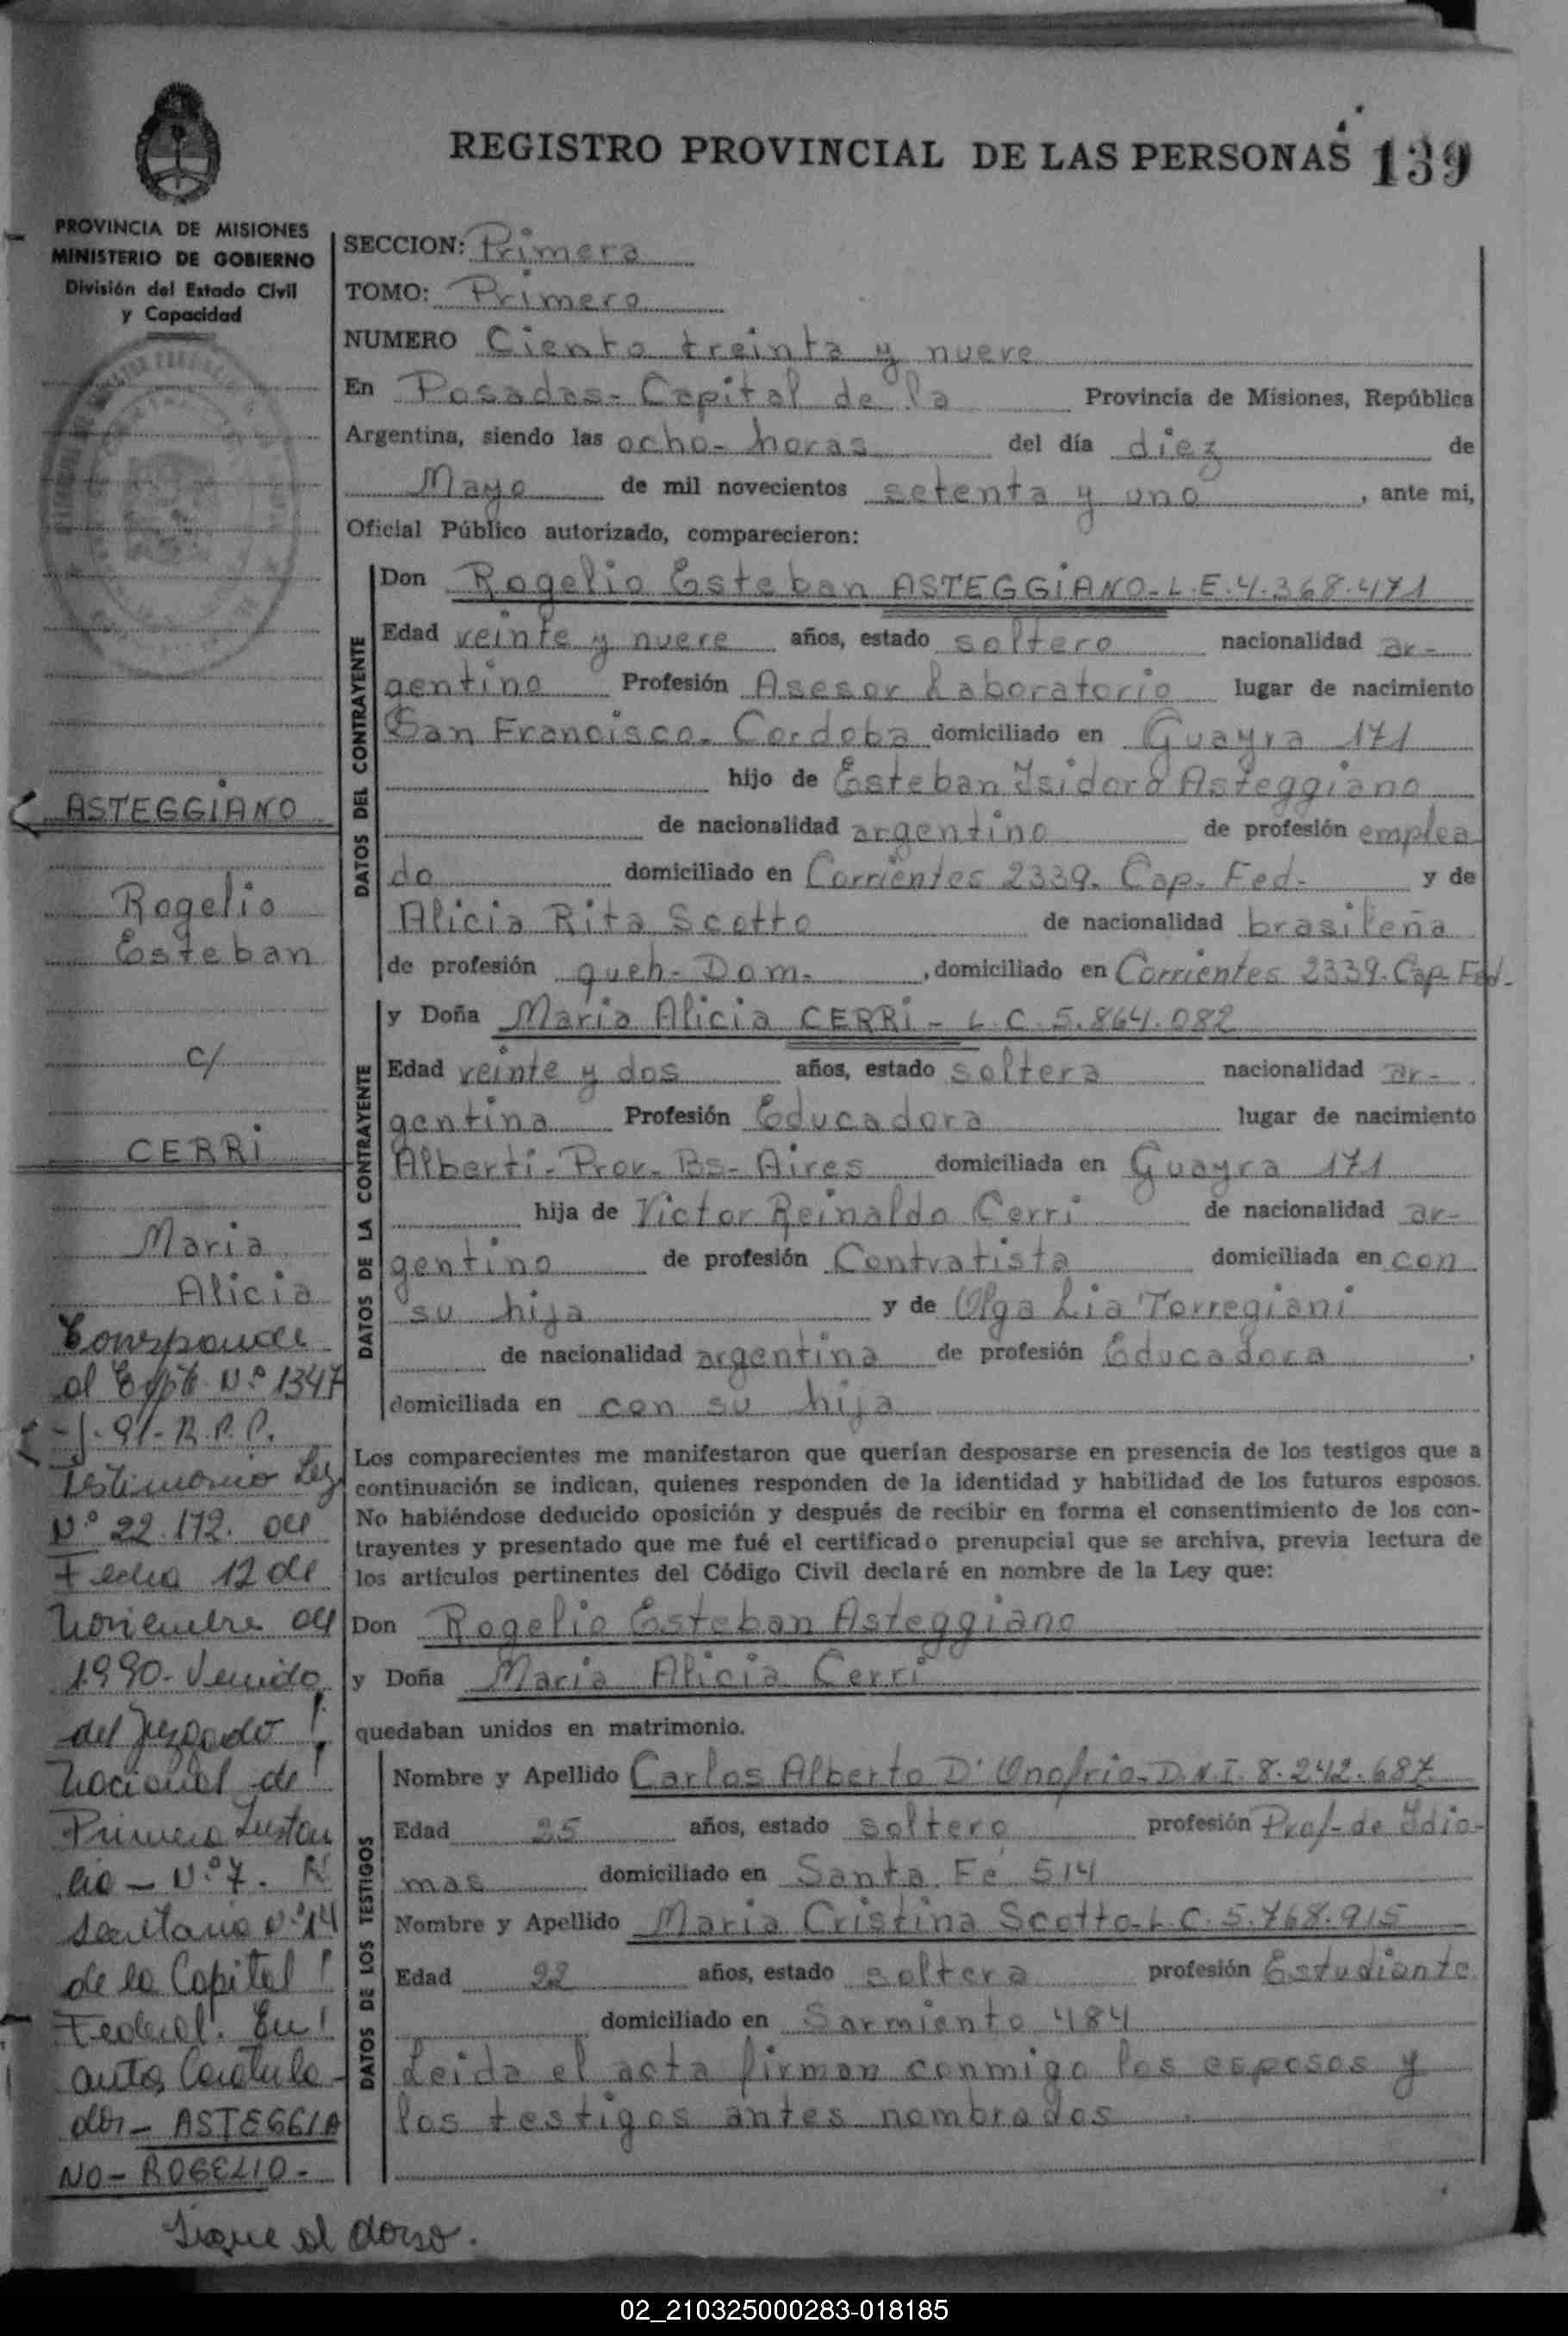 REGISTRO PROVINCIAL DE LAS PERSONAS 139
PROVINCIA DE MISIONES
MINISTERIO DE GOBIERNO
División del Estado Civil
y Capacidad
SECCION: Primera
TOMO: Primero
NUMERO Ciento treinta y nueve
En Posadas- Capital de la Provincia de Misiones, República
Argentina, siendo las ocho- horas del día diez de
Mayo de mil novecientos setenta y uno, ante mi,
Oficial Público autorizado, comparecieron:
DATOS DEL CONTRAYENTE
Don Rogelio Esteban ASTEGGiANO- L.E. 4.368.471
Edad veinte y nueve años, estado soltero nacionalidad ar-
gentino Profesión Asesor Laboratorio lugar de nacimiento
San Francisco- Cordoba domiciliado en Guayra 171
hijo de Esteban Isidoro Asteggiano
de nacionalidad argentino de profesión emplea
do domiciliado en Corrientes 2339. Cap. Fed- y de
Alicia Rita Scotto de nacionalidad brasileña
de profesión queh- Dom-, domiciliado en Corrientes 2339- Cap- Fed-
DATOS DE LA CONTRAYENTE
y Doña Maria Alicia CERRi - L.C. 5.864.082
Edad veinte y dos años, estado soltera nacionalidad ar-
gentina Profesión Educadora lugar de nacimiento
Alberti- Prov- Bs- Aires domiciliada en Guayra 171
hija de Victor Reinaldo Cerri de nacionalidad ar-
gentino de profesión Contratista domiciliada en con
su hija y de Olga Lia Torregiani
de nacionalidad argentina de profesión Educadora,
domiciliada en con su hija
Los comparecientes me manifestaron que querían desposarse en presencia de los testigos que a
continuación se indican, quienes responden de la identidad y habilidad de los futuros esposos.
No habiéndose deducido oposición y después de recibir en forma el consentimiento de los con-
trayentes y presentado que me fué el certificado prenupcial que se archiva, previa lectura de
los artículos pertinentes del Código Civil declaré en nombre de la Ley que:
Don Rogelio Esteban Asteggiano
y Doña Maria Alicia Cerri
quedaban unidos en matrimonio.
DATOS DE LOS TESTIGOS
Nombre y Apellido Carlos Alberto D'Onofrio- D.N.I. 8.242.687
Edad 25 años, estado soltero profesión Prof- de Idio-
mas domiciliado en Santa Fé 514
Nombre y Apellido Maria Cristina Scotto- L.C. 5.768.915
Edad 22 años, estado soltera profesión Estudiante
domiciliado en Sarmiento 484
Leida el acta firman conmigo los esposos y
los testigos antes nombrados
ASTEGGiANO
Rogelio
Esteban
c/
CERRi
Maria
Alicia
Corresponde
al Expte. Nº 1347
-J-91- R.P.P.
Testimonio Ley
Nº 22.172. de
Fecha 12 de
Noviembre de
1990- Venido
del Juzgado
Nacional de
Primera Instan
cia - Nº 7.
Secretaria Nº 14
de la Capital
Federal. En
autos Caratula-
dos- ASTEGGIA
NO- ROGELIO-
Sigue al dorso.
02_210325000283-018185